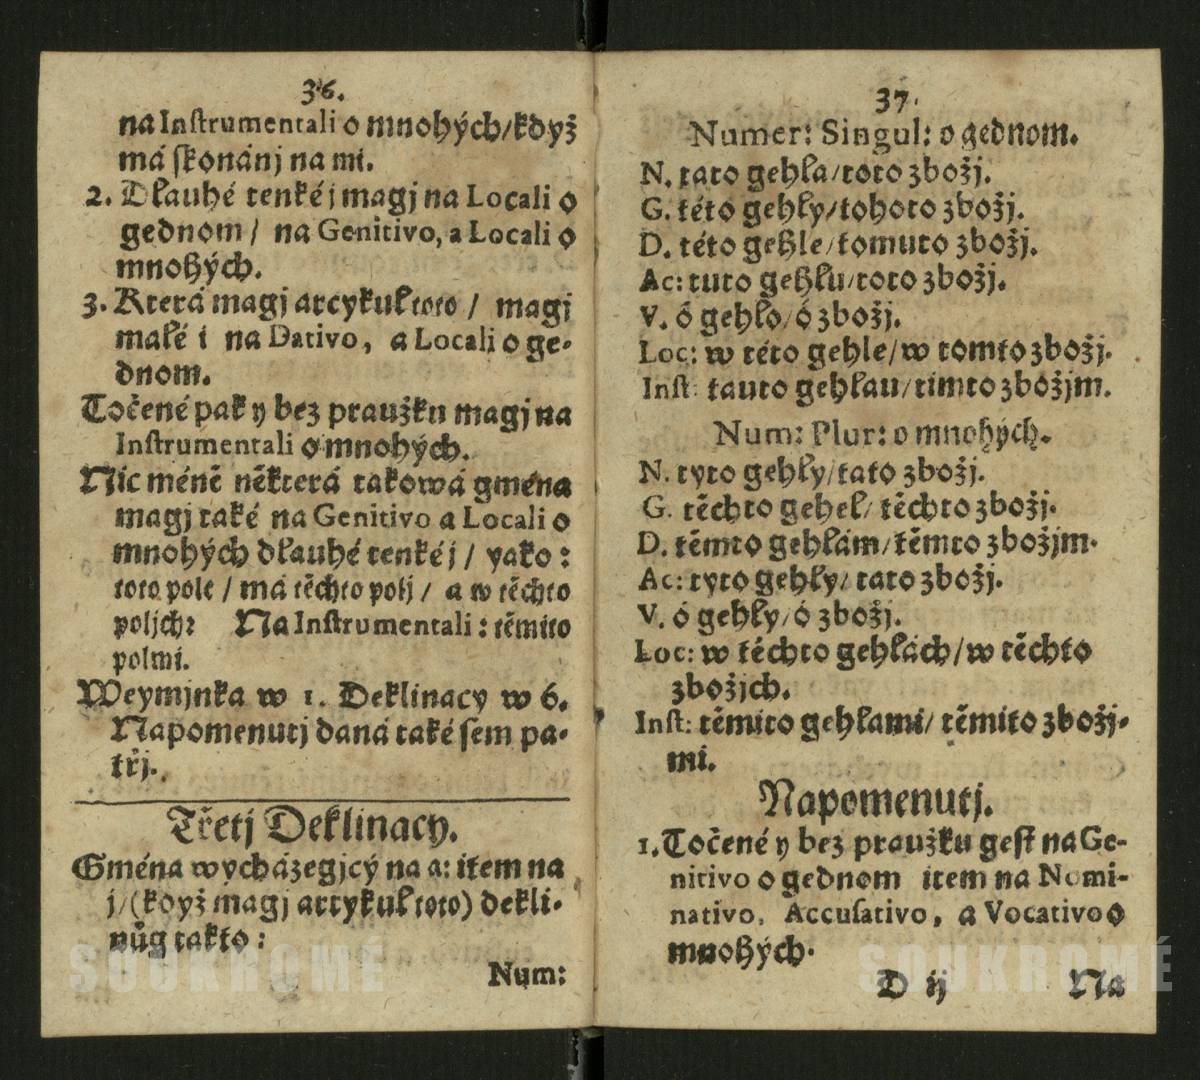 36.
na Inſtrumentali o mnohých/ když
má ſkonánj na mi.
2. Dlauhé tenké j magj na Locali o
gednom/ na Genitivo, a Locali o
mnohých.
3. Která magj artykuł toto / magj
małé i na Dativo, a Locali o ge-
dnom.
Točené pak y bez praužku magj na
Inſtrumentali o mnohých.
Nic méně některá takowá gména
magj také na Genitivo a Locali o
mnohých dłauhé tenké j / yako:
toto pole / má těchto polj / a w těchto
poljch: Na Inſtrumentali: těmito
polmi.
Weymjnka w 1. Deklinacy w 6.
Napomenutj daná také ſem pa-
třj.
Třetj Deklinacy.
Gména wycházegjcý na a: item na
j/ (když magj artykuł toto) dekli-
nůg takto:
Num:
37.
Numer: Singul: o gednom.
N. tato gehła/ toto zbožj.
G. této gehły/ tohoto zbožj.
D. této gehle/ tomuto zbožj.
Ac: tuto gehłu/ toto zbožj.
V. ó gehło/ ó zbožj.
Loc: w této gehle/ w tomto zbožj.
Inſt: tauto gehłau/ tímto zbožjm.
Num: Plur: o mnohých.
N. tyto gehły/ tato zbožj.
G. těchto gehel/ těchto zbožj.
D. těmto gehłám/ těmto zbožjm.
Ac: tyto gehły/ tato zbožj.
V. ó gehły/ ó zbožj.
Loc: w těchto gehłách/ w těchto
zbožjch.
Inſt: těmito gehłami/ těmito zbožj-
mi.
Napomenutj.
1. Točené y bez praužku geſt na Ge-
nitivo o gednom item na Nomi-
nativo, Accuſativo, a Vocativo o
mnohých.
D ij Na
SOUKROMÉ SOUKROMÉ